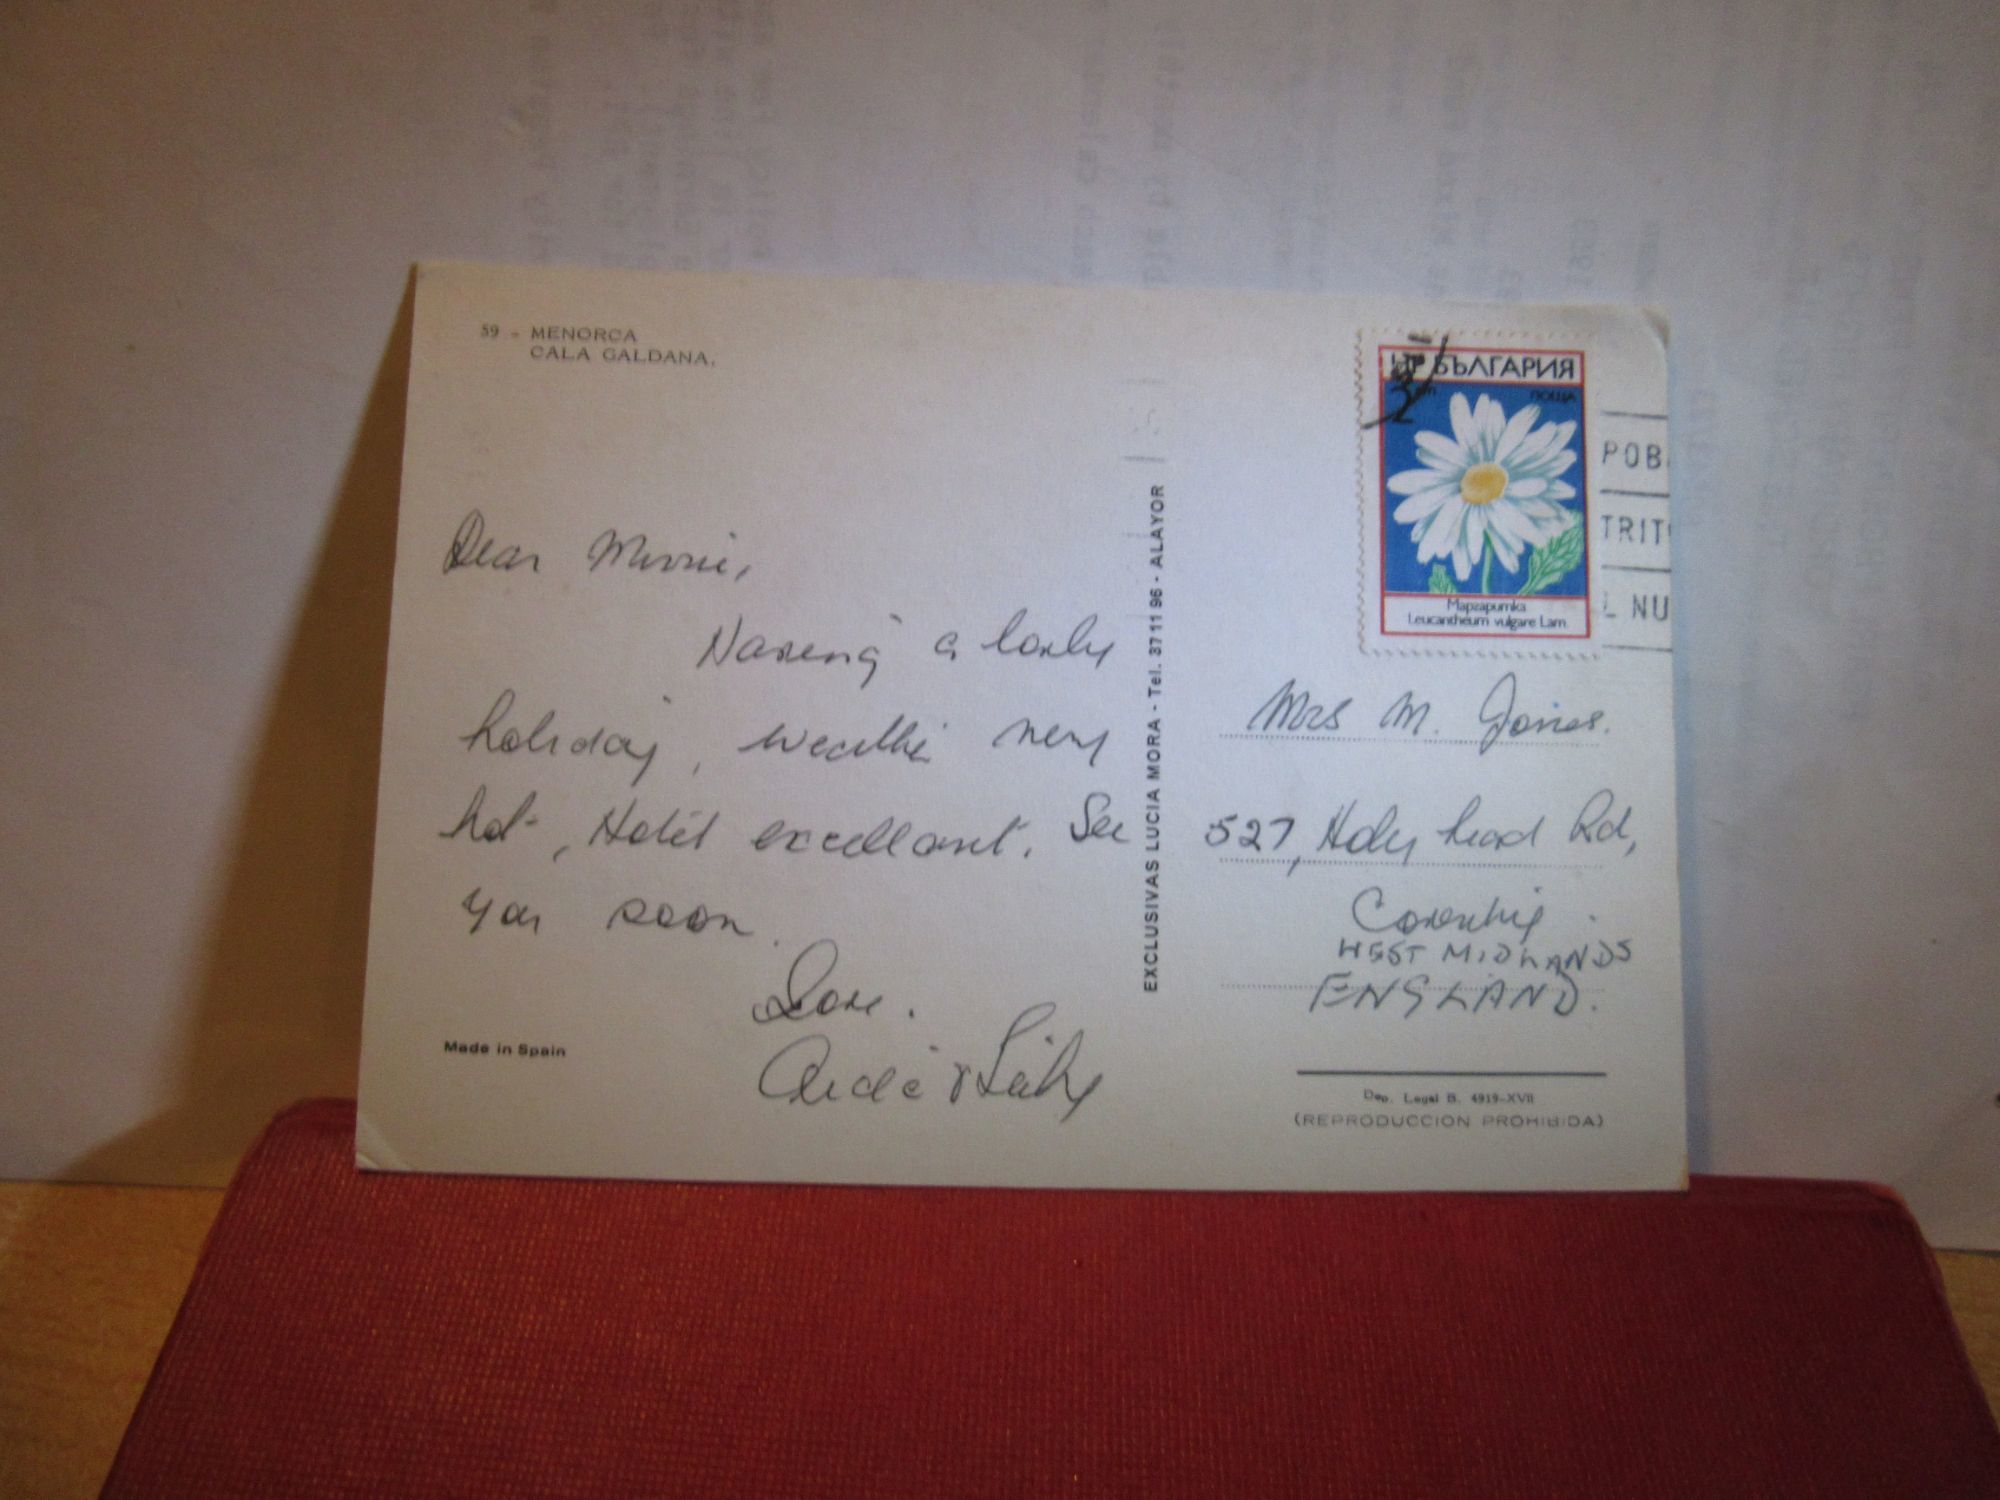 59 - MENORCA
CALA GALDANA.
Dear Minnie,
Having a lovely
holiday, weather very
hot, Hotel excellant. See
you soon.
Love.
Made in Spain
EXCLUSIVAS LUCIA MORA - Tel. 37 11 96 - ALAYOR
НР БЪЛГАРИЯ
ПОЩА
Маргаритка
Leucantheum vulgare Lam.
POB
TRIT
L NU
Mrs M. Jones.
527, Holy head Rd,
Coventry.
WEST MIDLANDS
ENGLAND.
Dep. Legal B. 4919-XVII
(REPRODUCCION PROHIBIDA)